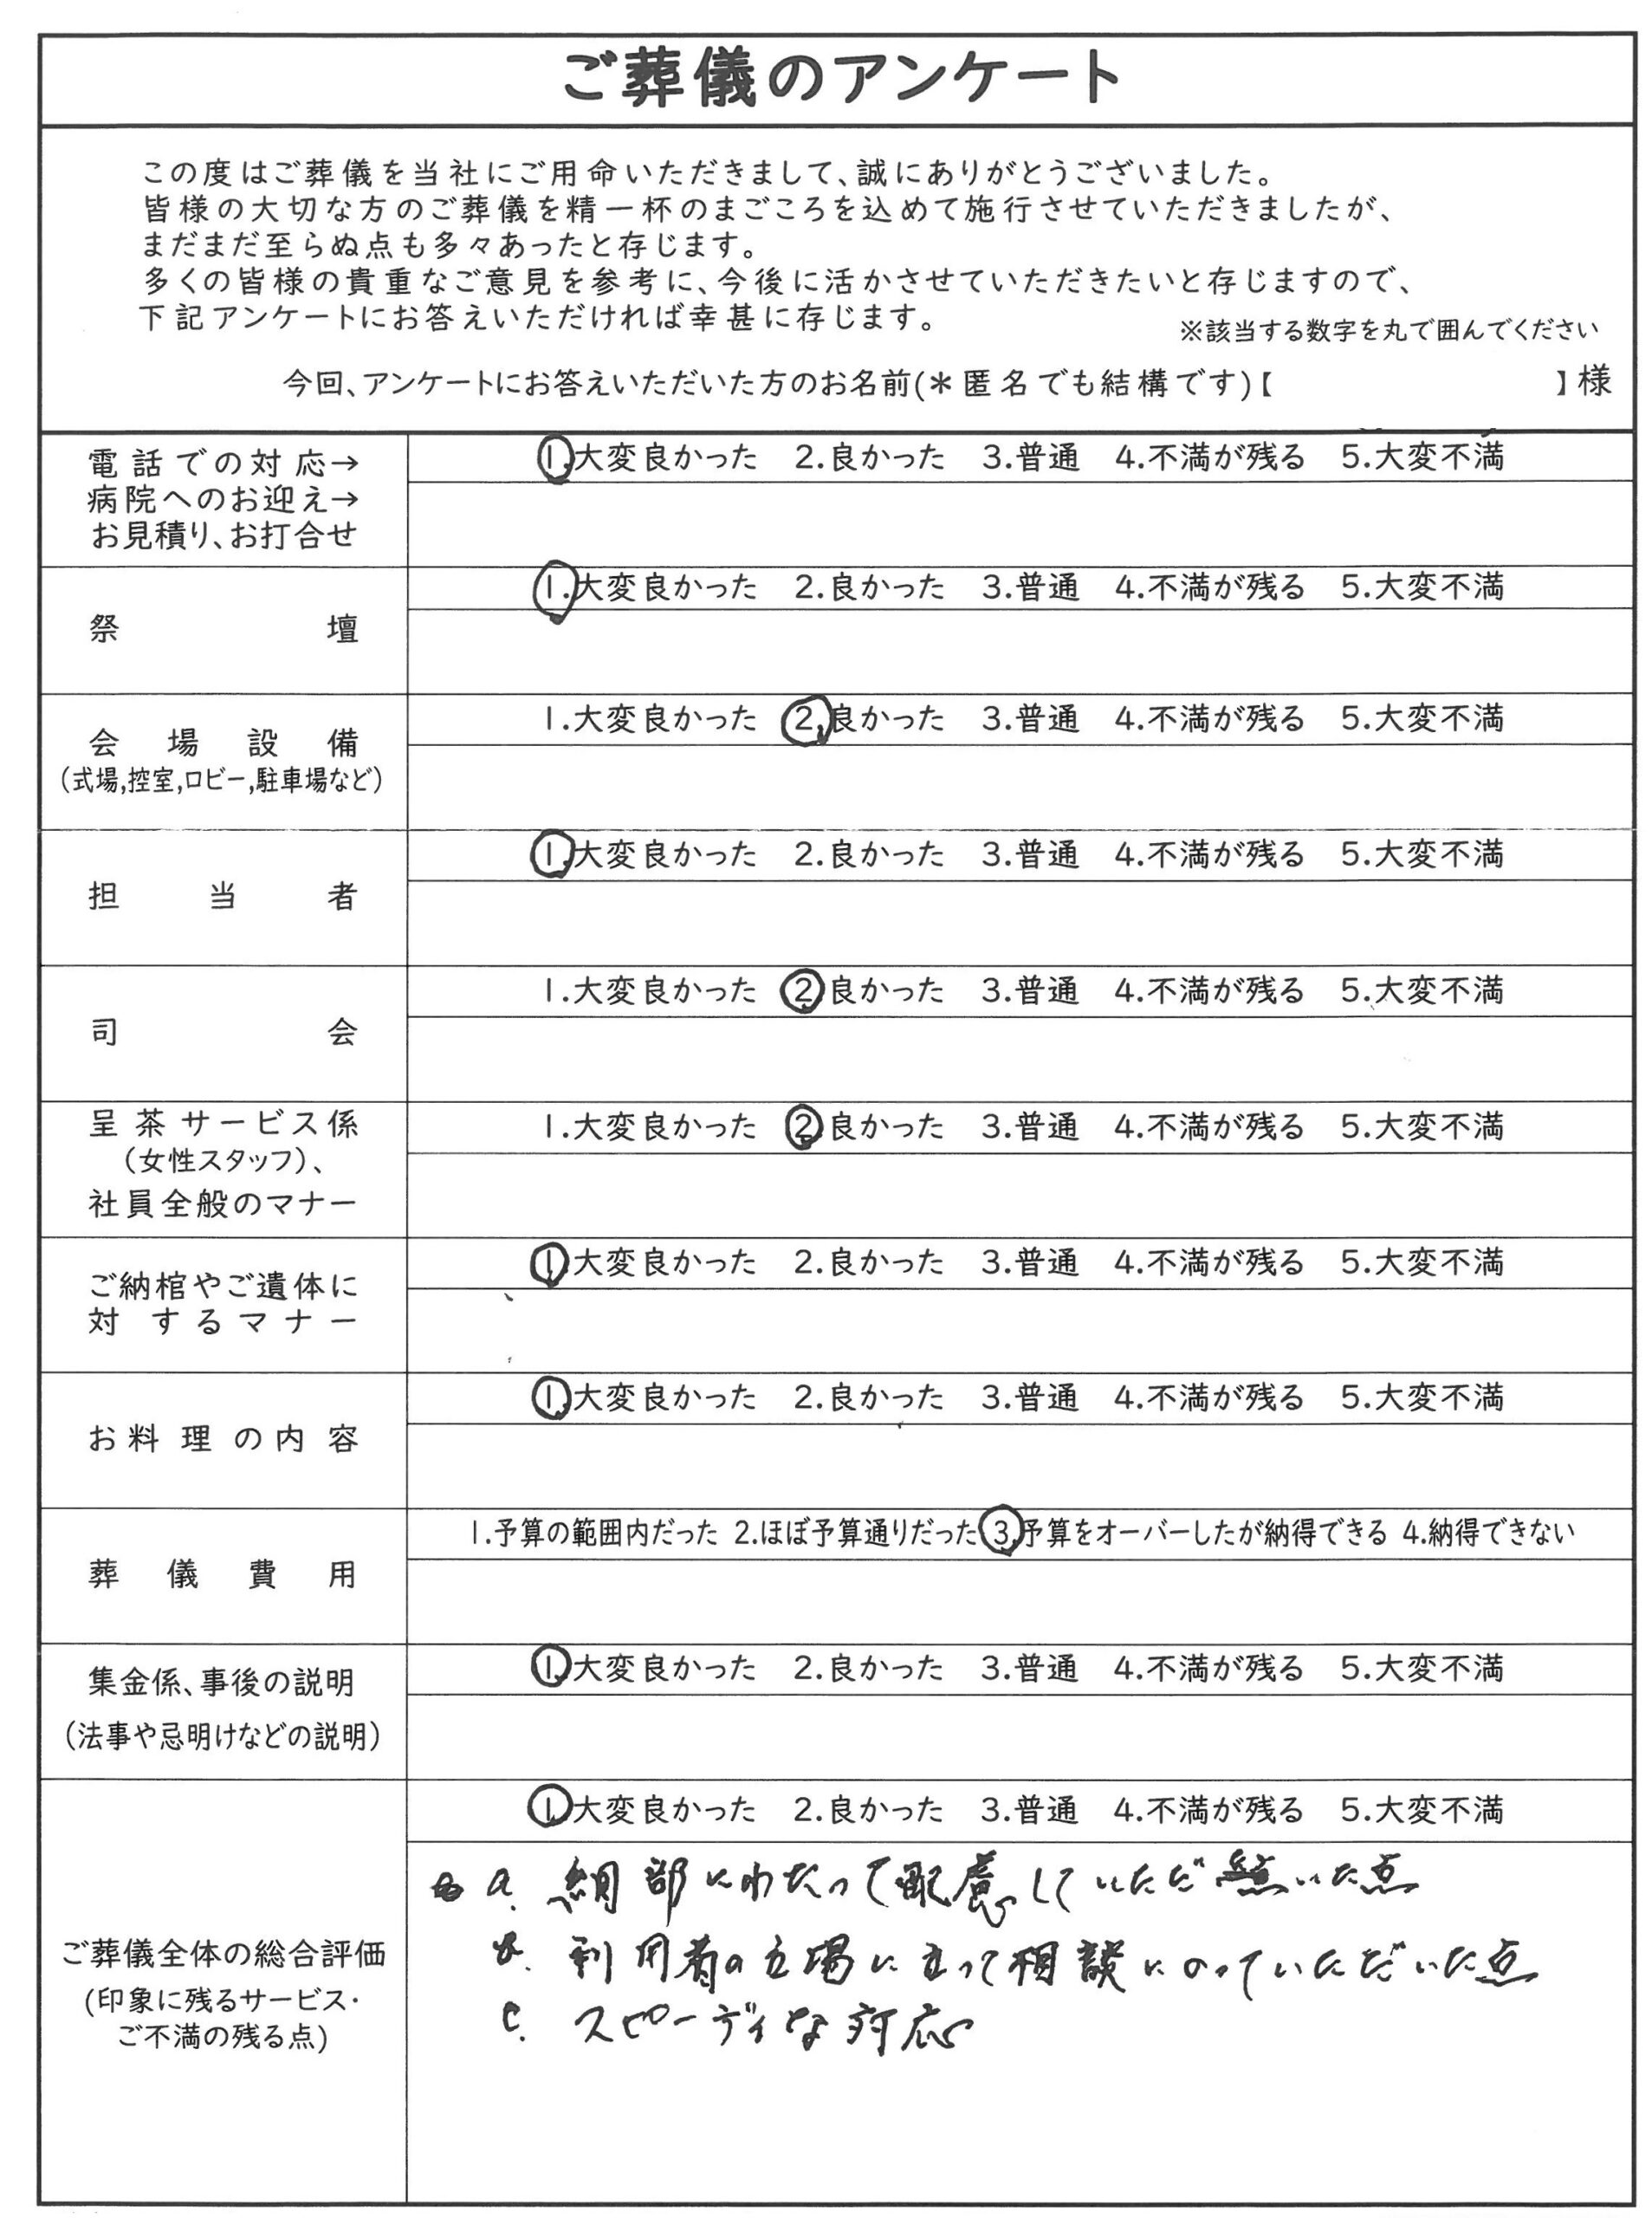 ご葬儀のアンケート
この度はご葬儀を当社にご用命いただきまして、誠にありがとうございました。
皆様の大切な方のご葬儀を精一杯のまごころを込めて施行させていただきましたが、
まだまだ至らぬ点も多々あったと存じます。
多くの皆様の貴重なご意見を参考に、今後に活かさせていただきたいと存じますので、
下記アンケートにお答えいただければ幸甚に存じます。
※該当する数字を丸で囲んでください
今回、アンケートにお答えいただいた方のお名前(＊匿名でも結構です)【 】様
電話での対応→
病院へのお迎え→
お見積り、お打合せ
1.大変良かった 2.良かった 3.普通 4.不満が残る 5.大変不満
祭壇
1.大変良かった 2.良かった 3.普通 4.不満が残る 5.大変不満
会場設備
(式場,控室,ロビー,駐車場など)
1.大変良かった 2.良かった 3.普通 4.不満が残る 5.大変不満
担当者
1.大変良かった 2.良かった 3.普通 4.不満が残る 5.大変不満
司会
1.大変良かった 2.良かった 3.普通 4.不満が残る 5.大変不満
呈茶サービス係
(女性スタッフ)、
社員全般のマナー
1.大変良かった 2.良かった 3.普通 4.不満が残る 5.大変不満
ご納棺やご遺体に
対するマナー
1.大変良かった 2.良かった 3.普通 4.不満が残る 5.大変不満
お料理の内容
1.大変良かった 2.良かった 3.普通 4.不満が残る 5.大変不満
葬儀費用
1.予算の範囲内だった 2.ほぼ予算通りだった 3.予算をオーバーしたが納得できる 4.納得できない
集金係、事後の説明
(法事や忌明けなどの説明)
1.大変良かった 2.良かった 3.普通 4.不満が残る 5.大変不満
ご葬儀全体の総合評価
(印象に残るサービス・
ご不満の残る点)
1.大変良かった 2.良かった 3.普通 4.不満が残る 5.大変不満
a. 細部にわたって配慮していただいた点
b. 利用者の立場に立って相談にのっていただいた点
c. スピーディな対応